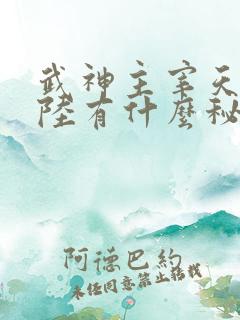 武神主宰天
陸有什麼秘
阿德巴約
未经同意禁止转载